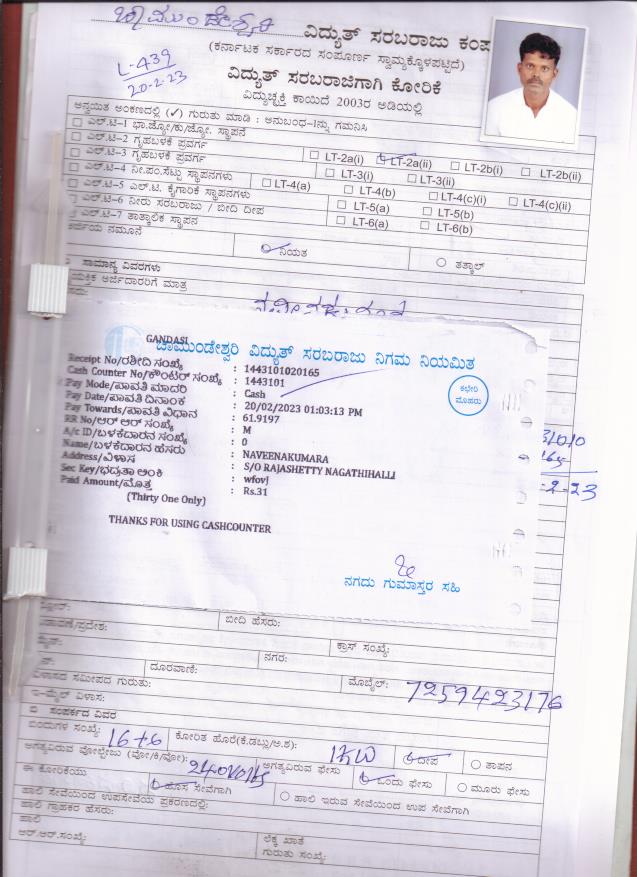 ಚಾಮುಂಡೇಶ್ವರಿ ವಿದ್ಯುತ್ ಸರಬರಾಜು ಕಂಪ
(ಕರ್ನಾಟಕ ಸರ್ಕಾರದ ಸಂಪೂರ್ಣ ಸ್ವಾಮ್ಯಕ್ಕೊಳಪಟ್ಟಿದೆ)
L-439
20-2-23
ವಿದ್ಯುತ್ ಸರಬರಾಜಿಗಾಗಿ ಕೋರಿಕೆ
ವಿದ್ಯುಚ್ಛಕ್ತಿ ಕಾಯಿದೆ 2003ರ ಅಡಿಯಲ್ಲಿ
ಅನ್ವಯಿತ ಅಂಕಣದಲ್ಲಿ (✓) ಗುರುತು ಮಾಡಿ : ಅನುಬಂಧ-Iನ್ನು ಗಮನಿಸಿ
ಎಲ್.ಟಿ-1 ಭಾ.ಜ್ಯೋ/ಕು.ಜ್ಯೋ. ಸ್ಥಾಪನೆ
ಎಲ್.ಟಿ-2 ಗೃಹಬಳಕೆ ಪ್ರವರ್ಗ LT-2a(i) LT-2a(ii) LT-2b(i) LT-2b(ii)
ಎಲ್.ಟಿ-3 ಗೃಹಬಳಕೆ ಪ್ರವರ್ಗ LT-3(i) LT-3(ii)
ಎಲ್.ಟಿ-4 ನೀ.ಪಂ.ಸೆಟ್ಟು ಸ್ಥಾಪನಗಳು LT-4(a) LT-4(b) LT-4(c)(i) LT-4(c)(ii)
ಎಲ್.ಟಿ-5 ಎಲ್.ಟಿ. ಕೈಗಾರಿಕೆ ಸ್ಥಾಪನಗಳು LT-5(a) LT-5(b)
ಎಲ್.ಟಿ-6 ನೀರು ಸರಬರಾಜು / ಬೀದಿ ದೀಪ LT-6(a) LT-6(b)
ಎಲ್.ಟಿ-7 ತಾತ್ಕಾಲಿಕ ಸ್ಥಾಪನ
ರ್ಜಿಯ ನಮೂನೆ ನಿಯತ ತತ್ಕಾಲ್
ಸಾಮಾನ್ಯ ವಿವರಗಳು
ಯಕ್ತಿಕ ಅರ್ಜಿದಾರರಿಗೆ ಮಾತ್ರ
ಸರು:
GANDASI
ಚಾಮುಂಡೇಶ್ವರಿ ವಿದ್ಯುತ್ ಸರಬರಾಜು ನಿಗಮ ನಿಯಮಿತ
Receipt No/ರಶೀದಿ ಸಂಖ್ಯೆ : 1443101020165
Cash Counter No/ಕೌಂಟರ್ ಸಂಖ್ಯೆ : 1443101
Pay Mode/ಪಾವತಿ ಮಾದರಿ : Cash
Pay Date/ಪಾವತಿ ದಿನಾಂಕ : 20/02/2023 01:03:13 PM
Pay Towards/ಪಾವತಿ ವಿಧಾನ : 61.9197
RR No/ಆರ್ ಆರ್ ಸಂಖ್ಯೆ : M
A/c ID/ಬಳಕೆದಾರನ ಸಂಖ್ಯೆ : 0
Name/ಬಳಕೆದಾರನ ಹೆಸರು : NAVEENAKUMARA
Address/ವಿಳಾಸ : S/O RAJASHETTY NAGATHIHALLI
Sec Key/ಭದ್ರತಾ ಅಂಕಿ : wfovj
Paid Amount/ಮೊತ್ತ : Rs.31
(Thirty One Only)
ಕಛೇರಿ
ಮೊಹರು
THANKS FOR USING CASHCOUNTER
ನಗದು ಗುಮಾಸ್ತರ ಸಹಿ
ಬೀದಿ ಹೆಸರು:
ಕ್ರಾಸ್ ಸಂಖ್ಯೆ:
ನಗರ:
ದೂರವಾಣಿ:
ಮೊಬೈಲ್: 7259423176
ವಿಳಾಸದ ಸಮೀಪದ ಗುರುತು:
ಇ-ಮೈಲ್ ವಿಳಾಸ:
ಬಿ ಸಂಪರ್ಕದ ವಿವರ
ಬಿಂದುಗಳ ಸಂಖ್ಯೆ: 16+6 ಕೋರಿತ ಹೊರೆ(ಕೆ.ಡಬ್ಲು/ಅ.ಶ): 1KW ದೀಪ ತಾಪನ
ಅಗತ್ಯವಿರುವ ವೋಲ್ಟೇಜು (ವೋ/ಕಿ/ವೋ): 240Volts ಅಗತ್ಯವಿರುವ ಫೇಸು ಒಂದು ಫೇಸು ಮೂರು ಫೇಸು
ಈ ಕೋರಿಕೆಯು ಹೊಸ ಸೇವೆಗಾಗಿ ಹಾಲಿ ಇರುವ ಸೇವೆಯಿಂದ ಉಪ ಸೇವೆಗಾಗಿ
ಹಾಲಿ ಸೇವೆಯಿಂದ ಉಪಸೇವೆಯ ಪ್ರಕರಣದಲ್ಲಿ:
ಹಾಲಿ ಗ್ರಾಹಕರ ಹೆಸರು:
ಹಾಲಿ
ಆರ್.ಆರ್.ಸಂಖ್ಯೆ:
ಲೆಕ್ಕ ಖಾತೆ
ಗುರುತು ಸಂಖ್ಯೆ: